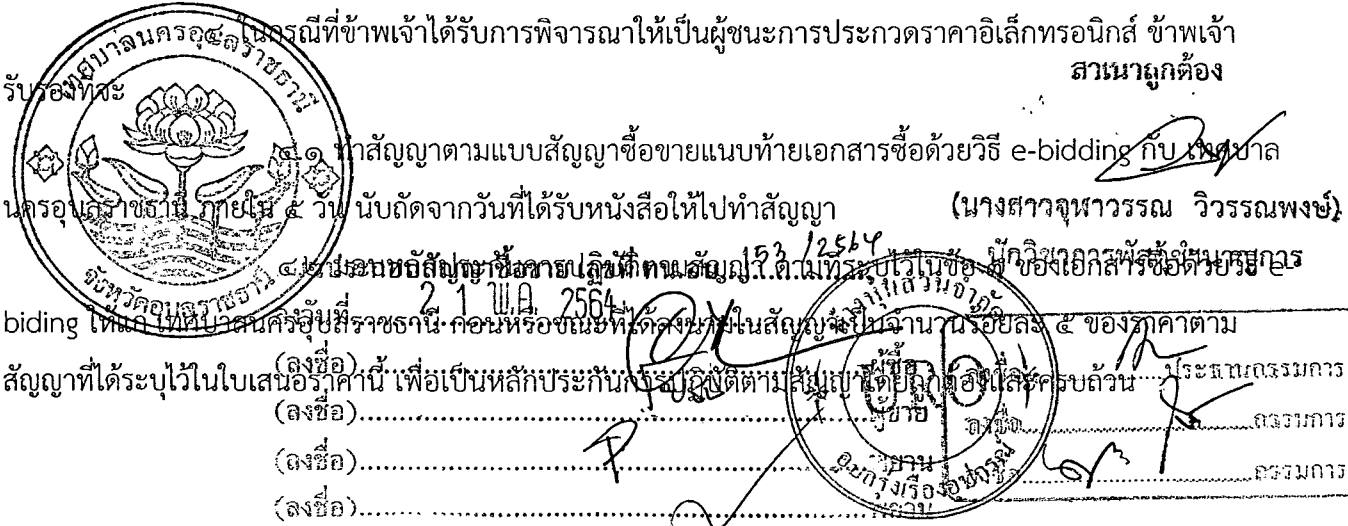 ๔. ในกรณีที่ข้าพเจ้าได้รับการพิจารณาให้เป็นผู้ชนะการประกวดราคาอิเล็กทรอนิกส์ ข้าพเจ้า
รับรองที่จะ
สำเนาถูกต้อง
๔.๑ ทำสัญญาตามแบบสัญญาซื้อขายแนบท้ายเอกสารซื้อด้วยวิธี e-bidding กับ เทศบาล
นครอุบลราชธานี ภายใน ๕ วัน นับถัดจากวันที่ได้รับหนังสือให้ไปทำสัญญา
(นางสาวจุฬาวรรณ วิวรรณพงษ์)
นักวิชาการพัสดุชำนาญการ
๔.๒ มอบหลักประกันการปฏิบัติตามสัญญา ตามที่ระบุไว้ในข้อ ๗ ของเอกสารซื้อด้วยวิธี e-
153/2564
วันที่ 21 พ.ค. 2564
biding ให้แก่ เทศบาลนครอุบลราชธานี ก่อนหรือขณะที่ได้ลงนามในสัญญาเป็นจำนวนร้อยละ ๕ ของราคาตาม
สัญญาที่ได้ระบุไว้ในใบเสนอราคานี้ เพื่อเป็นหลักประกันการปฏิบัติตามสัญญาโดยถูกต้องและครบถ้วน
(ลงชื่อ) ผู้ซื้อ
(ลงชื่อ) ผู้ขาย
(ลงชื่อ) พยาน
(ลงชื่อ) พยาน
ลงชื่อ ประธานกรรมการ
ลงชื่อ กรรมการ
ลงชื่อ กรรมการ
เทศบาลนครอุบลราชธานี
จังหวัดอุบลราชธานี
ห้างหุ้นส่วนจำกัด